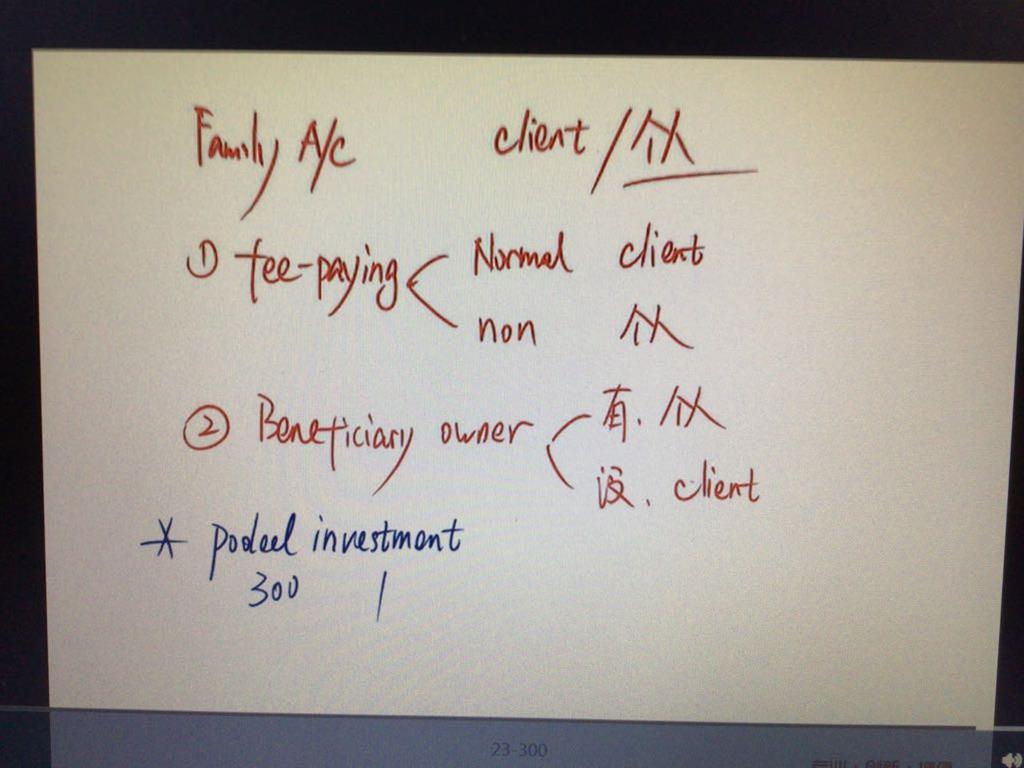 Family A/c client / 个人
① fee-paying Normal client
non 个人
② Beneficiary owner 有. 个人
没. client
* pooled investment
300 1
23-300
专业·创新·增值